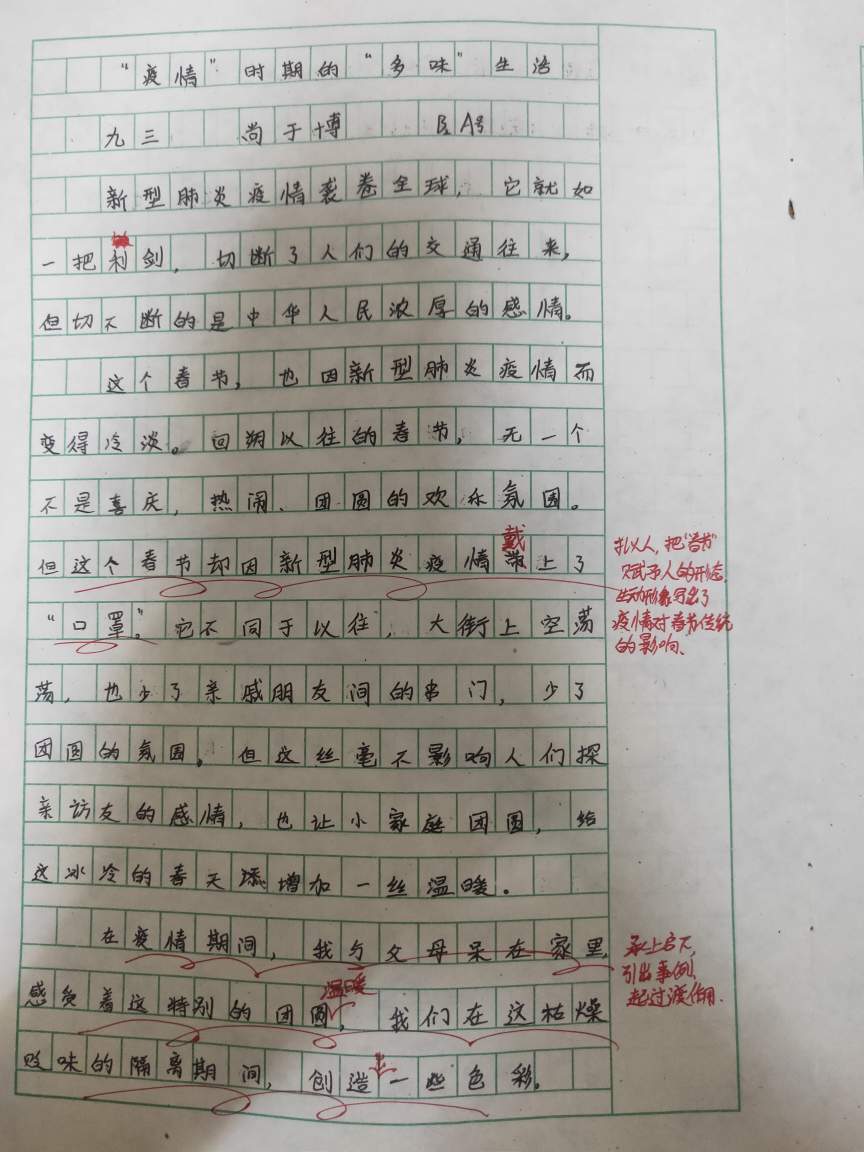 “疫情”时期的“多味”生活
九三 尚于博 B A号
新型肺炎疫情袭卷全球，它就如
一把利剑，切断了人们的交通往来，
但切不断的是中华人民浓厚的感情。
这个春节，也因新型肺炎疫情而
变得冷淡。回朔以往的春节，无一个
不是喜庆，热闹、团圆的欢乐氛围。
但这个春节却因新型肺炎疫情带上了
戴
“口罩”。它不同于以往，大街上空荡
荡，也少了亲戚朋友间的串门，少了
团圆的氛围，但这丝毫不影响人们探
亲访友的感情，也让小家庭团圆，给
这冰冷的春天添增加一丝温暖。
在疫情期间，我与父母呆在家里，
感受着这特别的团圆，我们在这枯燥
温暖
败味的隔离期间，创造一些色彩。
拟人，把“春节”
赋予人的形态，
生动形象写出了
疫情对春节传统
的影响、
承上启下，
引出事例，
起过渡作用.